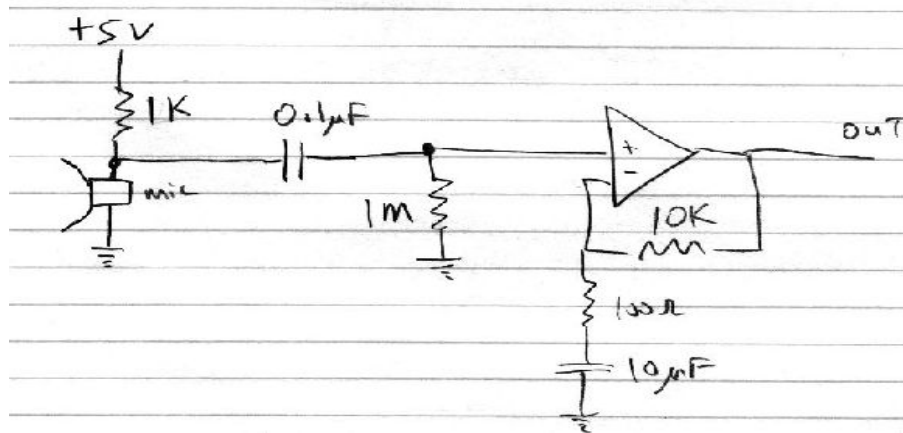 +5V
1K
0.1µF
mic
1M
+
-
10K
out
100Ω
10µF